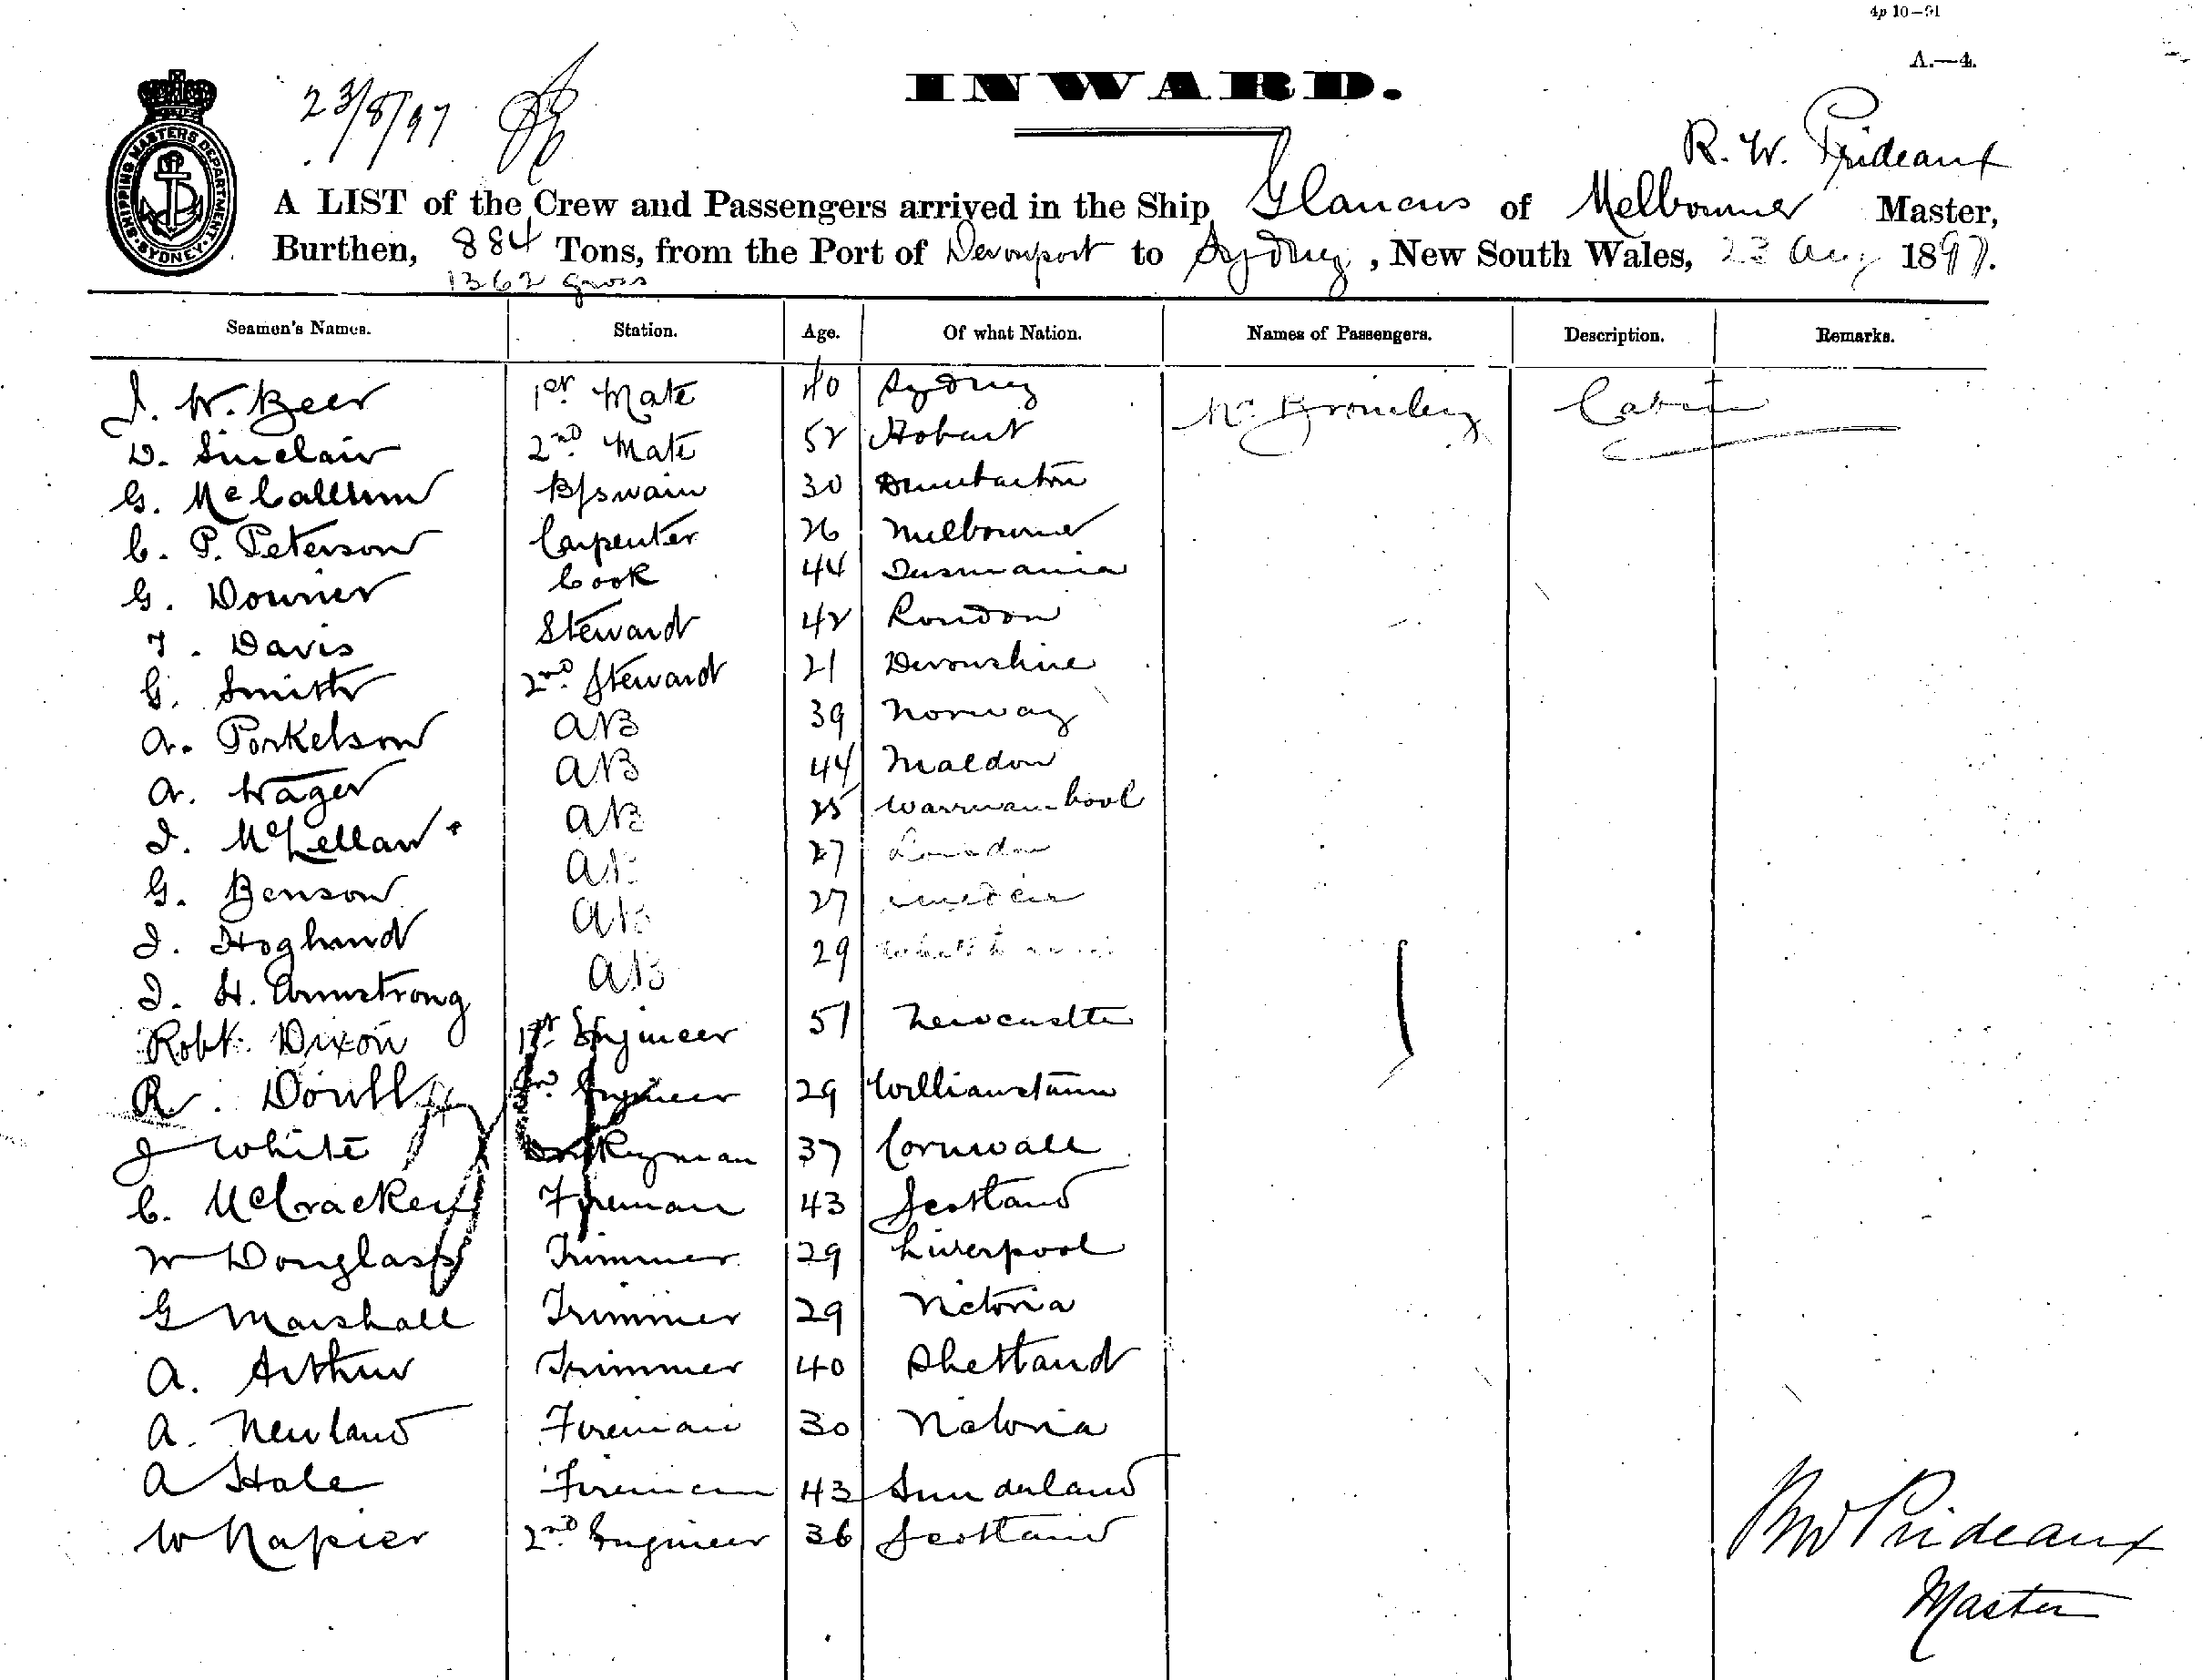 4p 10–91
A.—4.
23/8/97
INWARD.
SHIPPING MASTERS DEPARTMENT. SYDNEY.
R. W. Prideaux
A LIST of the Crew and Passengers arrived in the Ship Glaucus of Melbourne Master,
Burthen, 884 Tons, from the Port of Devonport to Sydney, New South Wales, 23 Aug 1897.
1362 gross
Seamen's Names. Station. Age. Of what Nation. Names of Passengers. Description. Remarks.
J. W. Beer 1st Mate 40 Sydney Mr Bromley Cabin
D. Sinclair 2nd Mate 52 Hobart
G. McCallum B/swain 30 Dumbarton
C. P. Peterson Carpenter 26 Melbourne
G. Downer Cook 44 Tasmania
T. Davis Steward 42 London
G. Smith 2nd Steward 21 Devonshire
A. Porkelson AB 39 Norway
A. Wager AB 44 Maldon
J. McLellan AB 25 Warrnambool
G. Benson AB 27 London
J. Hoglund AB 27
J. H. Armstrong AB 29
Robt. Dixon 1st Engineer 51 Newcastle
R. Doull Engineer 29 Williamstown
J White Donkeyman 37 Cornwall
C. McCracken Fireman 43 Scotland
W Douglass Trimmer 29 Liverpool
G Marshall Trimmer 29 Victoria
A. Arthur Trimmer 40 Shetland
A. Newland Fireman 30 Victoria
A Hale Fireman 43 Sunderland
W Napier 2nd Engineer 36 Scotland
RW Prideaux
Master